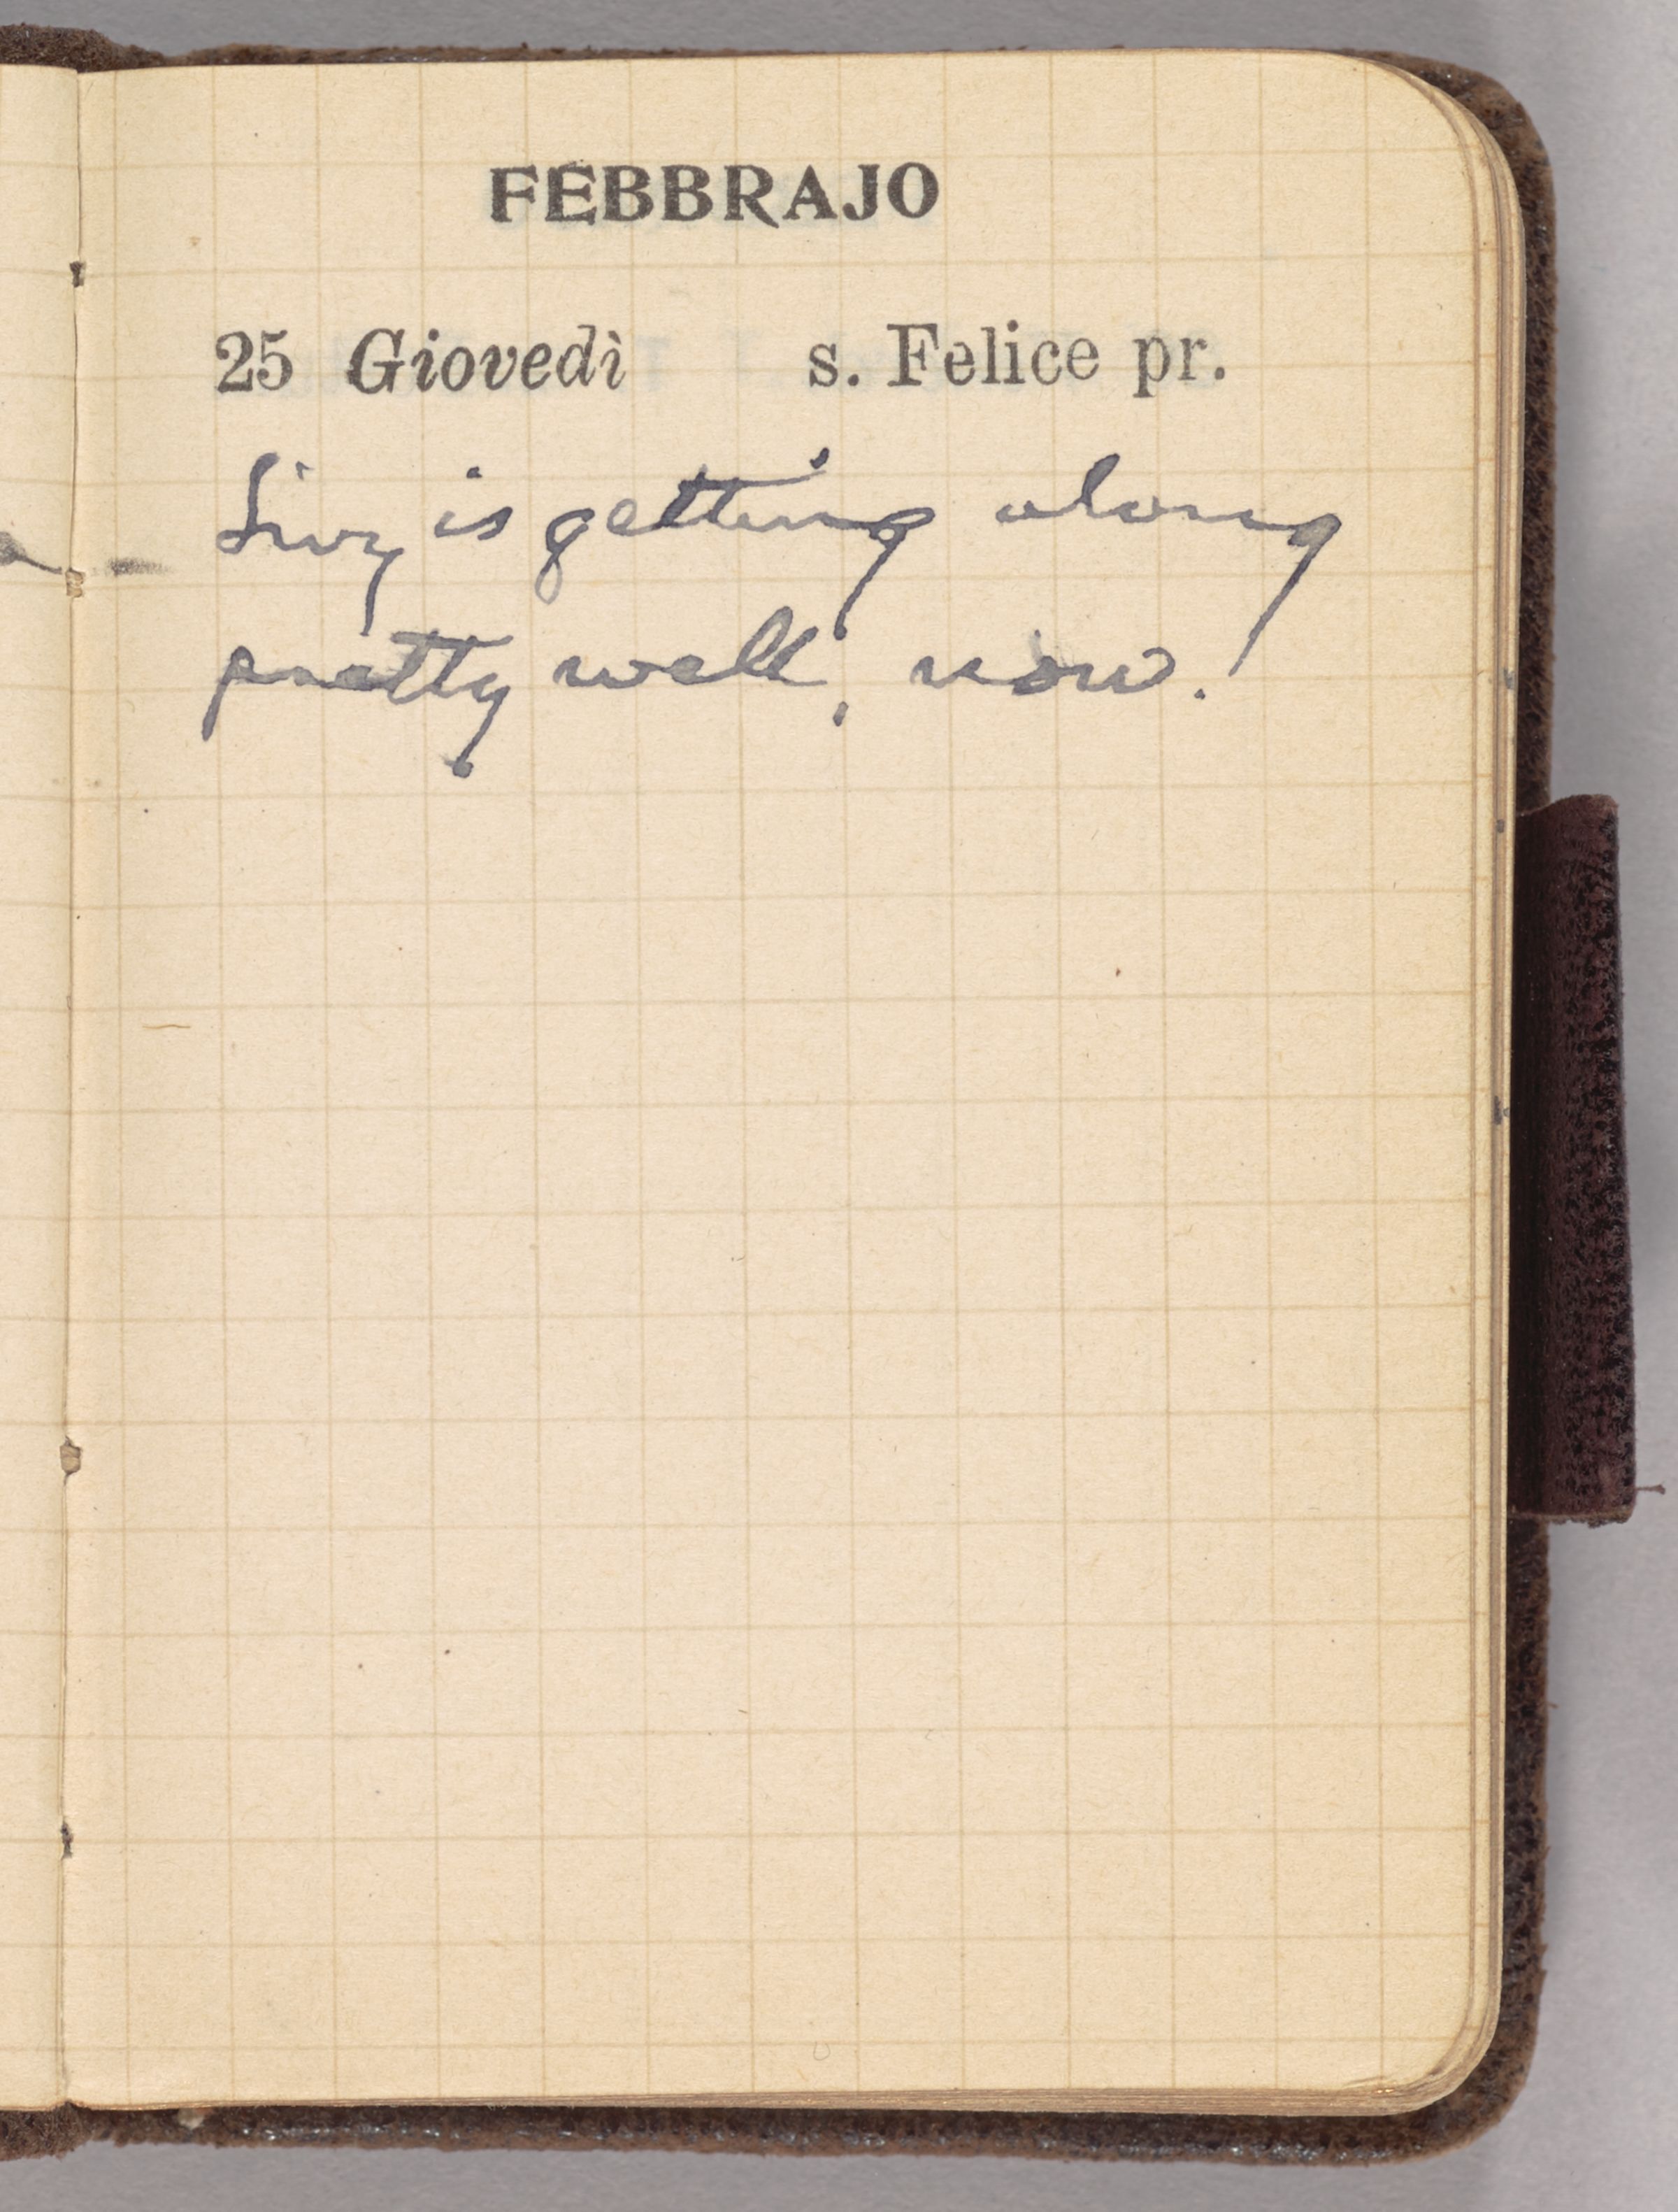 FEBBRAJO
25 Giovedì s. Felice pr.
Livy is getting along
pretty well, now.